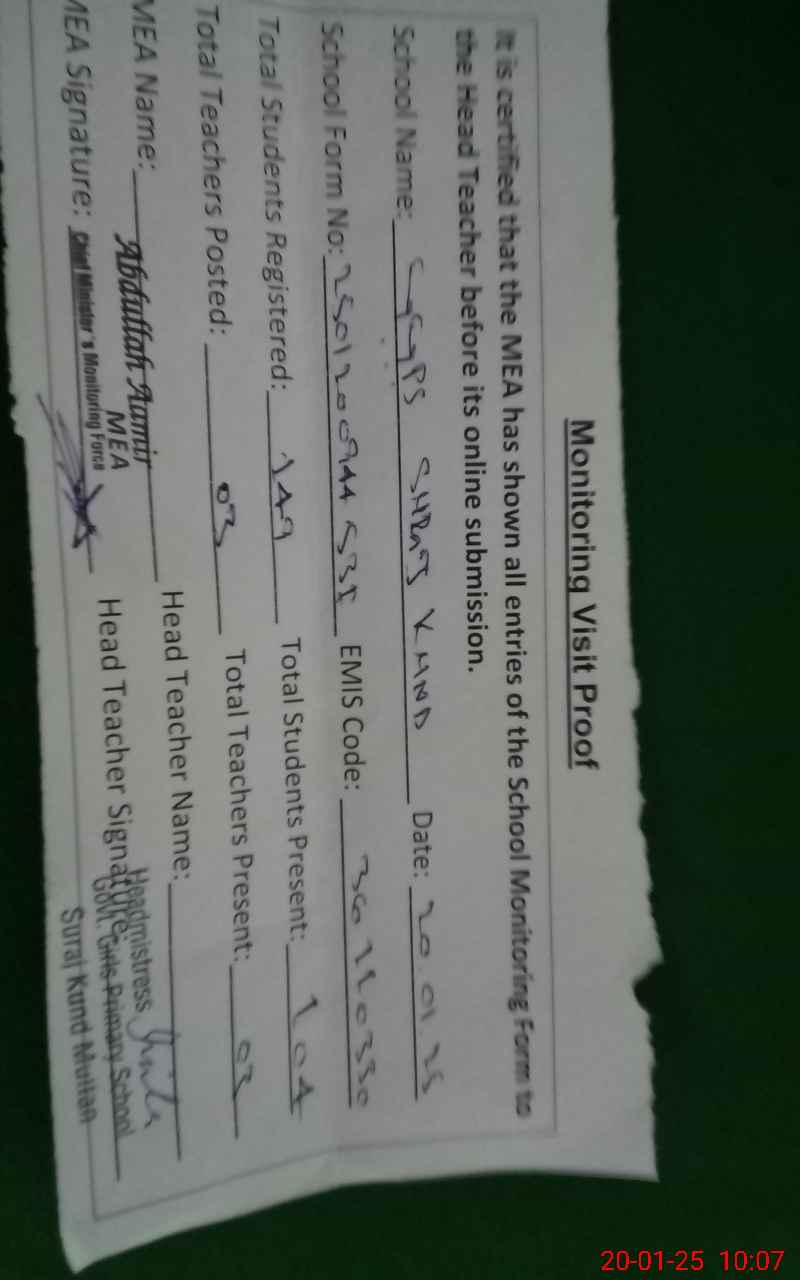 Monitoring Visit Proof
It is certified that the MEA has shown all entries of the School Monitoring Form to
the Head Teacher before its online submission.
School Name: GGPS SURAJ KUND Date: 20.01.25
School Form No: EMIS Code: 36110330
Total Students Registered: 149 Total Students Present: 104
Total Teachers Posted: 03 Total Teachers Present: 03
MEA Name: Abdullah Aamir Head Teacher Name:
MEA
MEA Signature: Chief Minister's Monitoring Force Head Teacher Signature:
Headmistress
Govt. Girls Primary School
Suraj Kund Multan
20-01-25 10:07